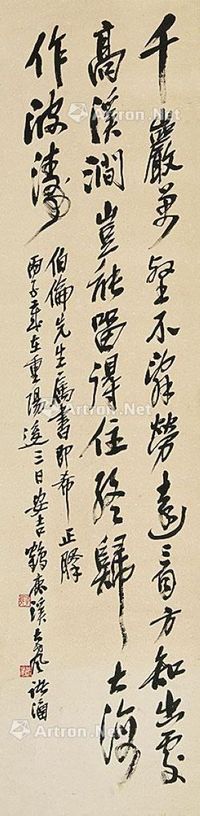 千巖萬壑不辭勞遠看方知出處
高溪澗豈能留得住終歸大海
作波濤
伯倫先生屬書即希正
丙子歲在重陽後三日安吉鶴鹿溪
Artron.Net
Artron.Net
Artron.Net
Artron.Net